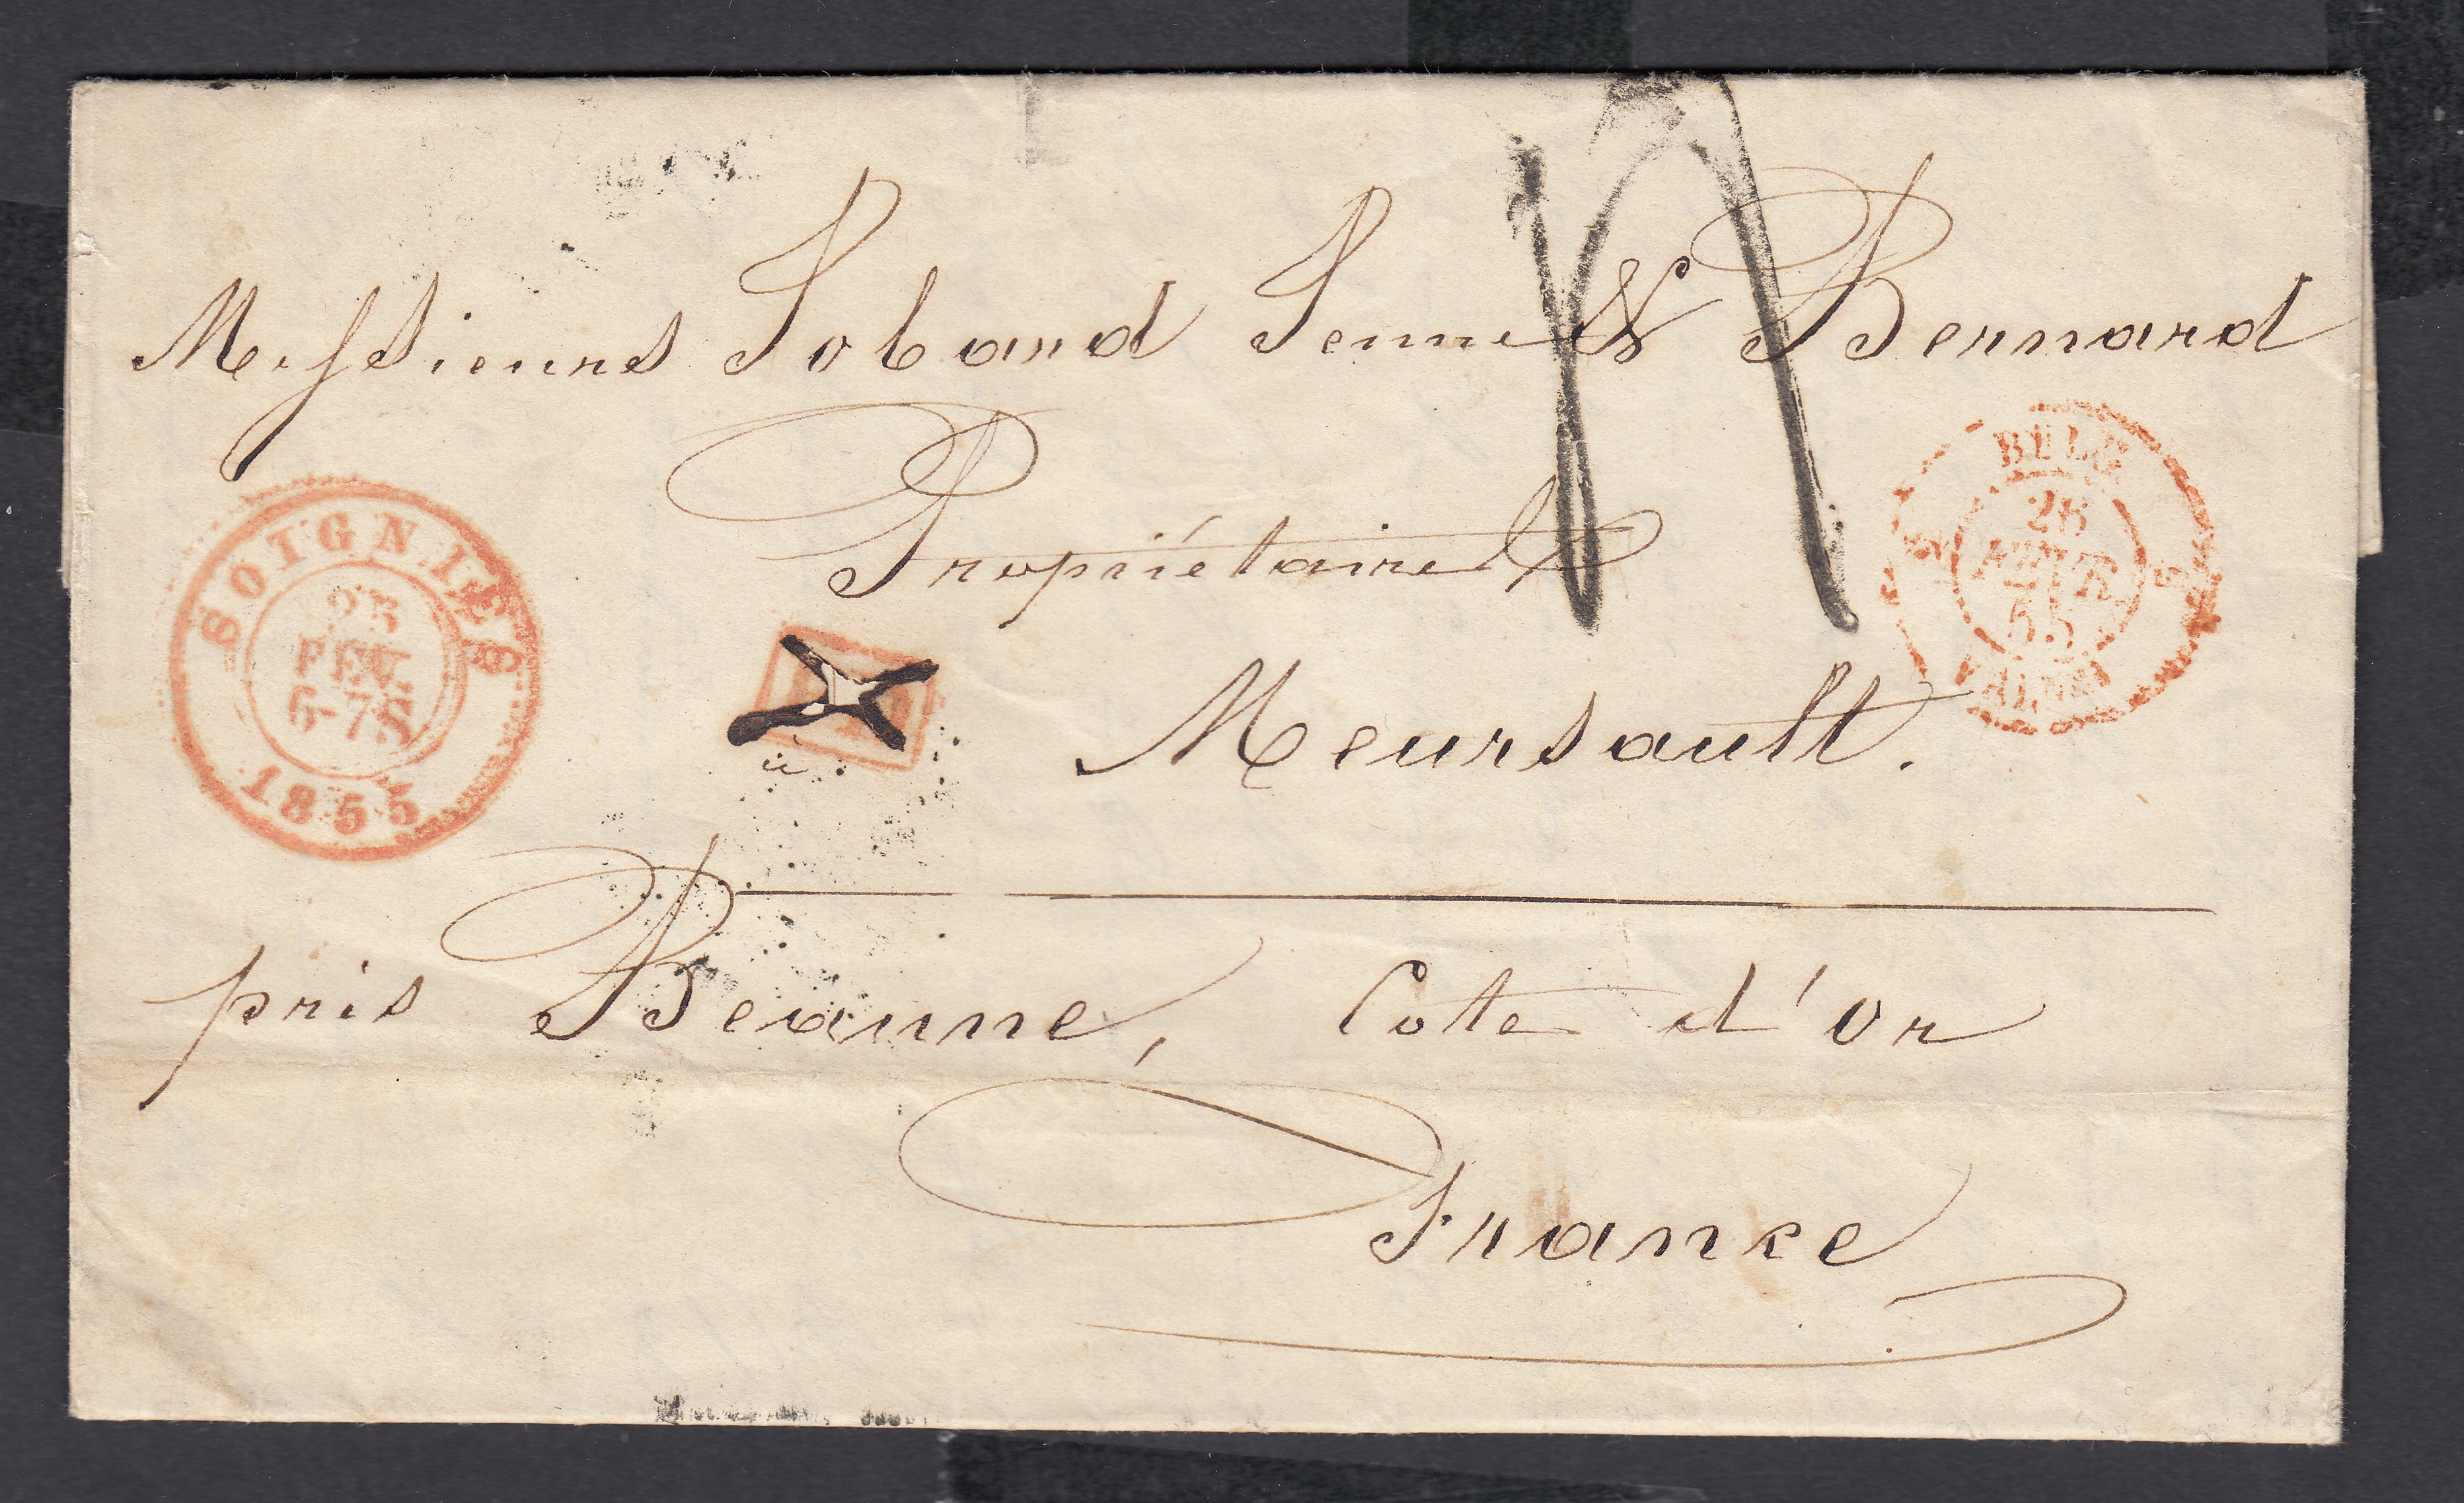 Messieurs Jobard Jeune & Bernard
Propriétaires
Meursault.
près Beaune, Cote d'Or
France
SOIGNIES
25
FEV.
5-7S
1855
BELG
26
FEVR.
55